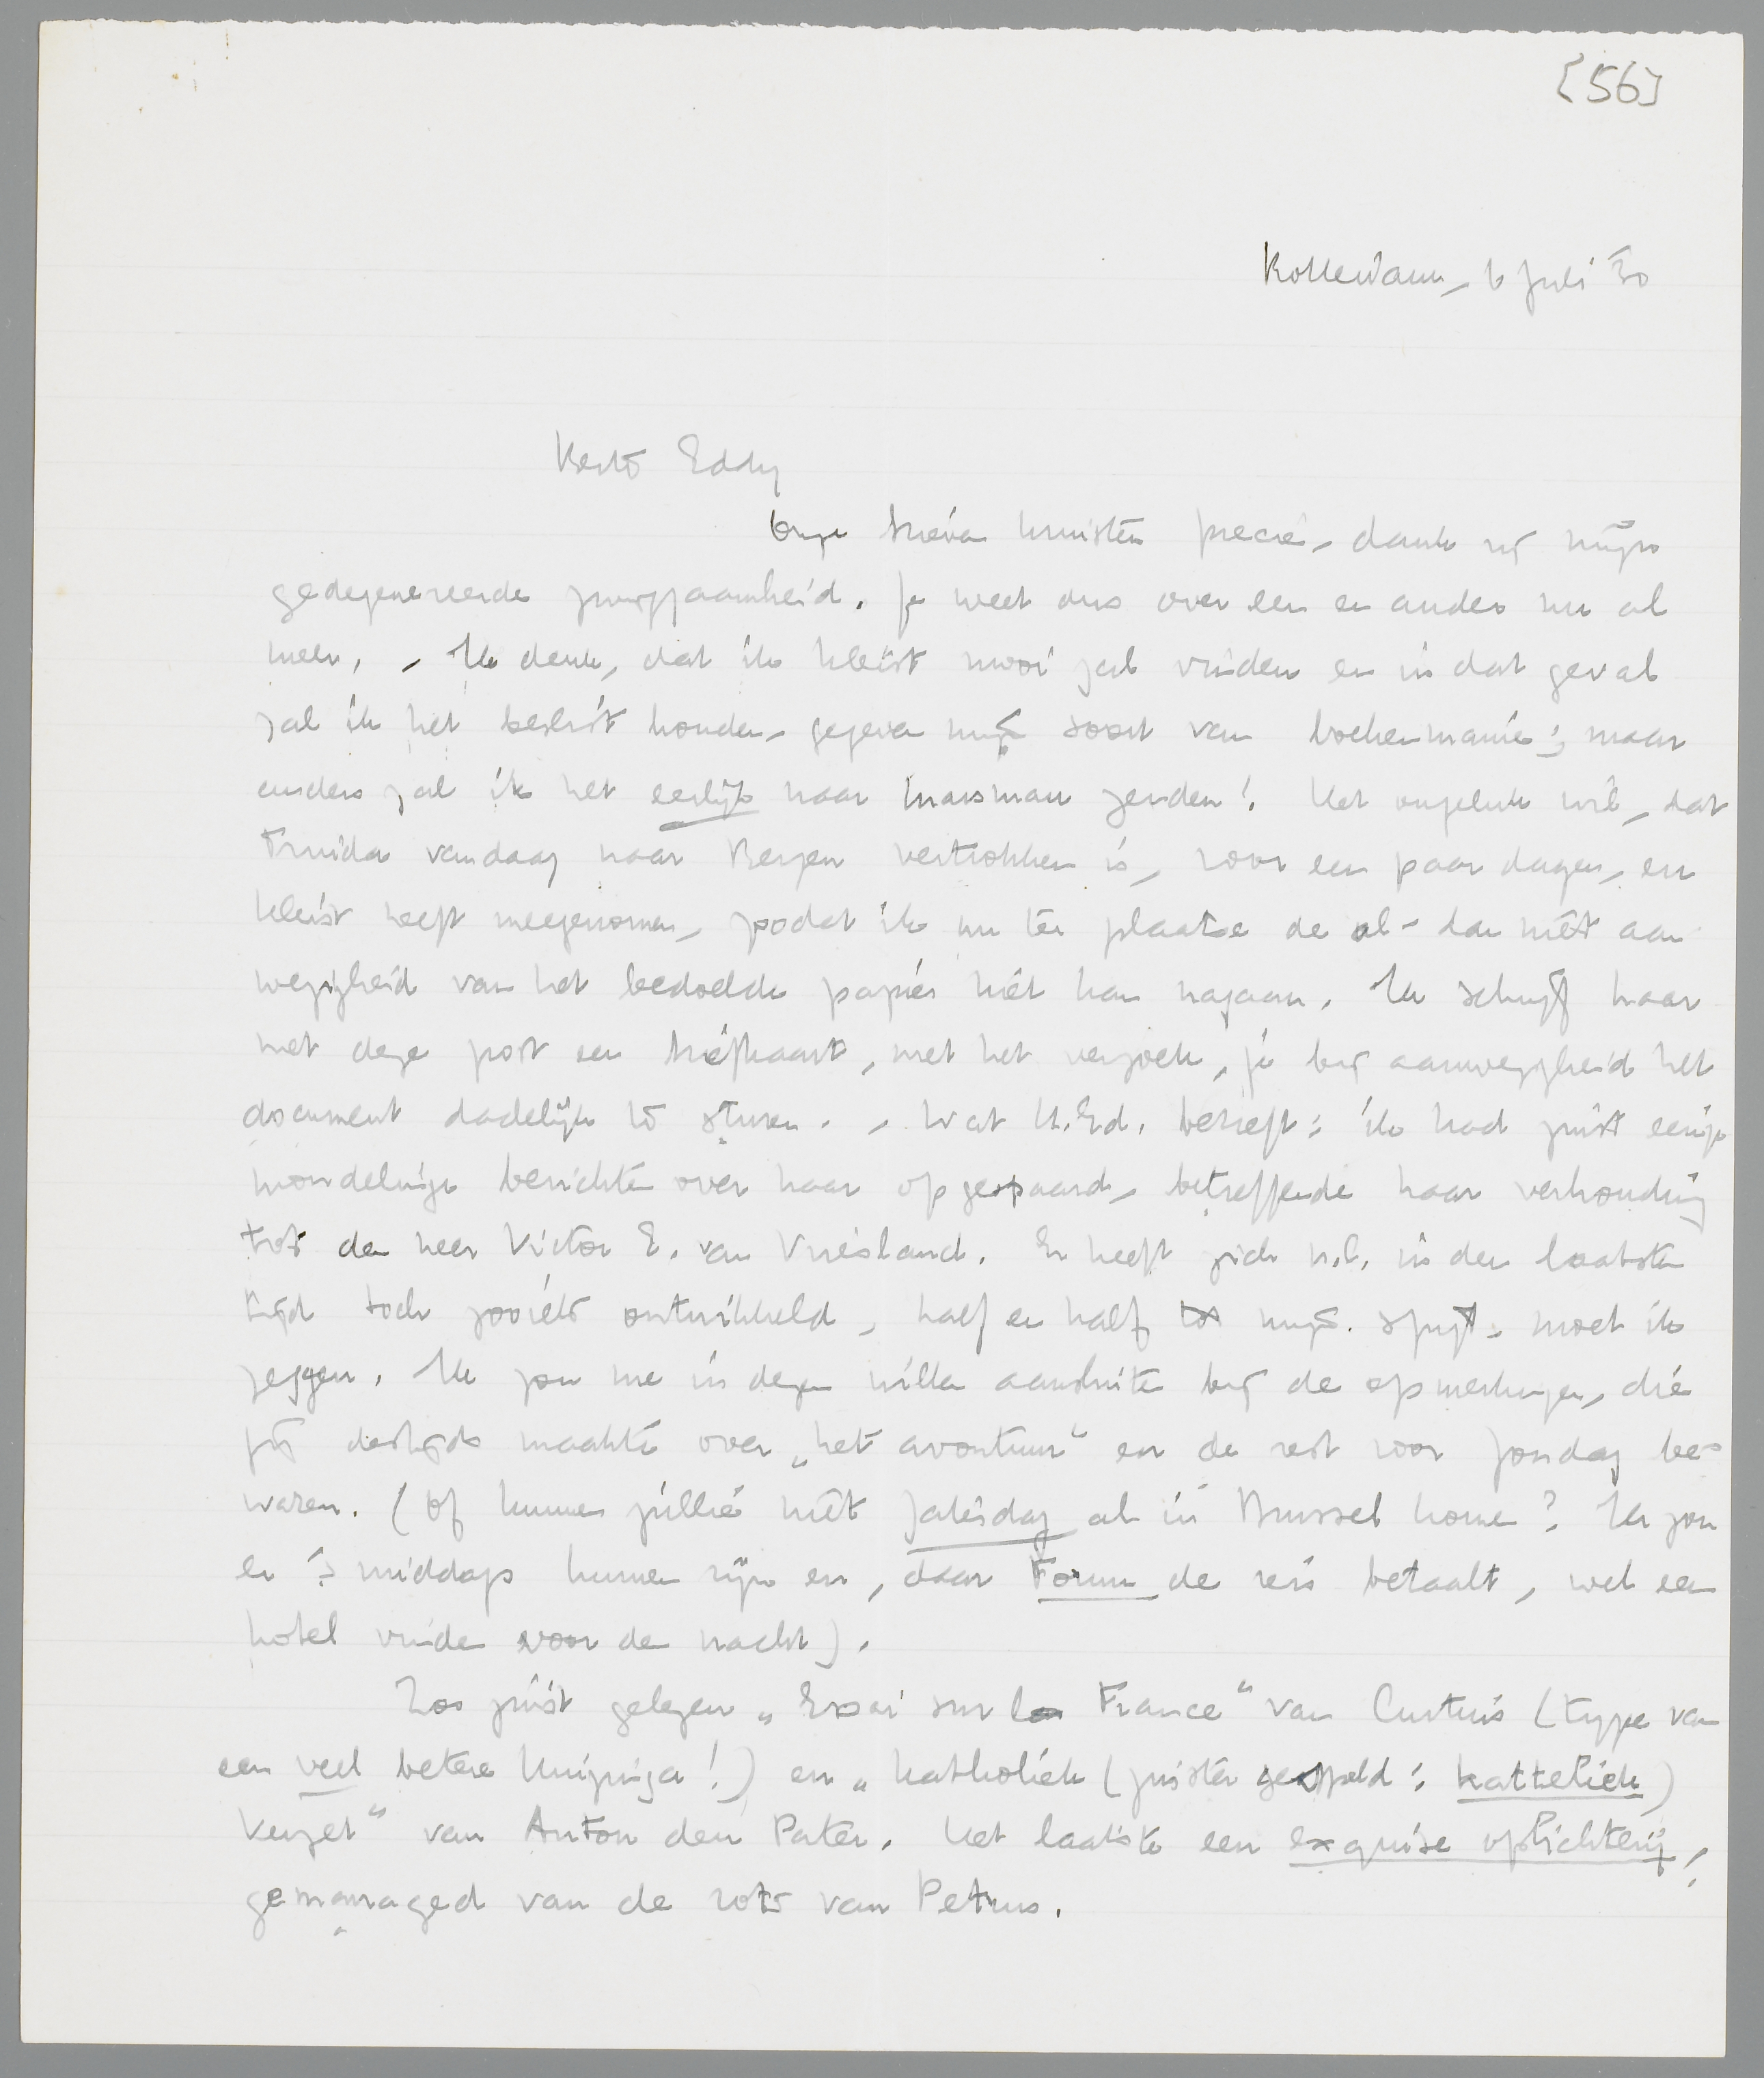 [56]
Rotterdam, 6 Juli 30
Beste Eddy
Onze brieven kruisten precies, dank zij mijn
gedegenereerde zwijgzaamheid. Je weet dus over een en ander nu al
meer. - Ik denk, dat ik Kleist mooi zal vinden en in dat geval
zal ik het beslist houden, gegeven mijn soort van boekenmanie; maar
anders zal ik het eerlijk naar Marsman zenden! Het ongeluk wil, dat
Truida vandaag naar Bergen vertrokken is, voor een paar dagen, en
Kleist heeft meegenomen, zodat ik nu ter plaatse de al- dan niet aan
wezigheid van het bedoelde papier niet kan nagaan. Ik schrijf haar
met deze post een briefkaart, met het verzoek, je bij aanwezigheid het
document dadelijk te sturen. - Wat H.Ed. betreft: ik had juist eenige
mondelinge berichten over haar opgespaard, betreffende haar verhouding
tot den heer Victor E. van Vriesland. Er heeft zich n.l. in den laatsten
tijd toch zooiets ontwikkeld, half en half tot mijn spijt, moet ik
zeggen. Ik zou me in dezen willen aansluiten bij de opmerkingen, die
jij destijds maakte over „het avontuur" en de rest voor Zondag be-
waren. (Of kunnen jullie niet Zaterdag al in Brussel komen? Ik zou
er 's middags kunnen zijn en, daar Forum de reis betaalt, wel een
hotel vinden voor den nacht).
Zoo juist gelezen „Essai sur la France" van Curtius (type van
een veel betere Huizinga!) en „Katholiek (juister gespeld: katteliek)
Verzet" van Anton den Pater. Het laatste een exquise oplichterij,
gemanaged van de rots van Petrus.